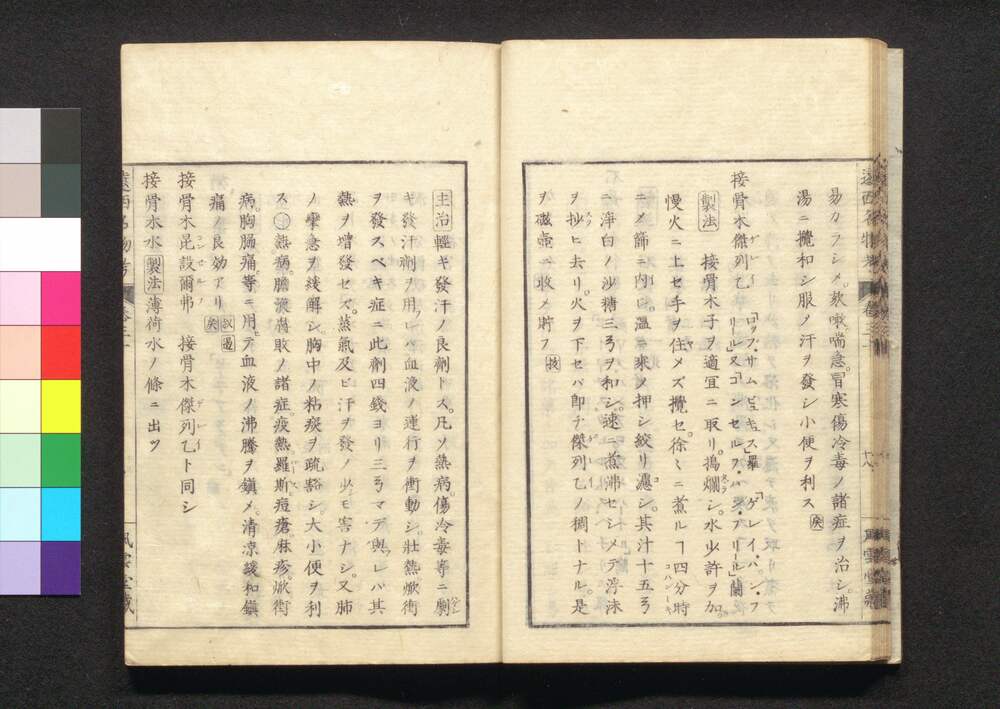 易カラシメ。欬嗽喘急。冒寒傷冷毒ノ諸症ヲ治シ。沸
湯ニ攪和シ服メ汗ヲ發シ小便ヲ利ス 矦
接骨木傑列乙 ゲレイ 「ロッブ・サムビュキ」ス羅 「ゲレイ・ハン・フリール」又「コンセルフ・ハン・フリール」蘭
製法 接骨木子ヲ適宜ニ取リ。搗爛シ。水少許ヲ加。
慢火ニ上セ手ヲ住メズ攪セ。徐々ニ煮ルヿ四分時
ニメ篩ニ内レ。温ニ乘メ押シ絞リ濾シ。其汁十五ゟ
ニ淨白ノ沙糖三ゟヲ和シ。速ニ煮沸セシメテ浮沫
ヲ抄ヒ去リ。火ヲ下セバ卽チ傑列乙ノ稠トナル。是
ヲ磁壺ニ收メ貯フ 扶
遠西名物考 卷三十
十八
風雲堂藏
主治 輕キ發汗ノ良劑トス。凡ソ熱病。傷冷毒等ニ劇
キ發汗劑ヲ用レバ血液ノ運行ヲ衝動シ。壯熱焮衝
ヲ發スベキ症ニ此劑四錢ヨリ三ゟマデ與レバ其
熱ヲ増發セズ。蒸氣及ビ汗ヲ發ノ少モ害ナシ。又肺
ノ攣急ヲ緩解シ。胸中ノ粘痰ヲ疏豁シ大小便ヲ利
ス 熱病。膽液腐敗ノ諸症疫熱羅斯。痘瘡。麻疹。焮衝
病。胸膈痛等ニ用テ血液ノ沸騰ヲ鎭メ。清凉緩和鎭
痛ノ良効アリ 矦
接骨木昆設爾弗 コンセルフ 接骨木傑列乙 デレイ ト同シ
接骨木水 製法 薄荷水ノ條ニ出ツ
遠西名物考 卷三十
風雲堂藏